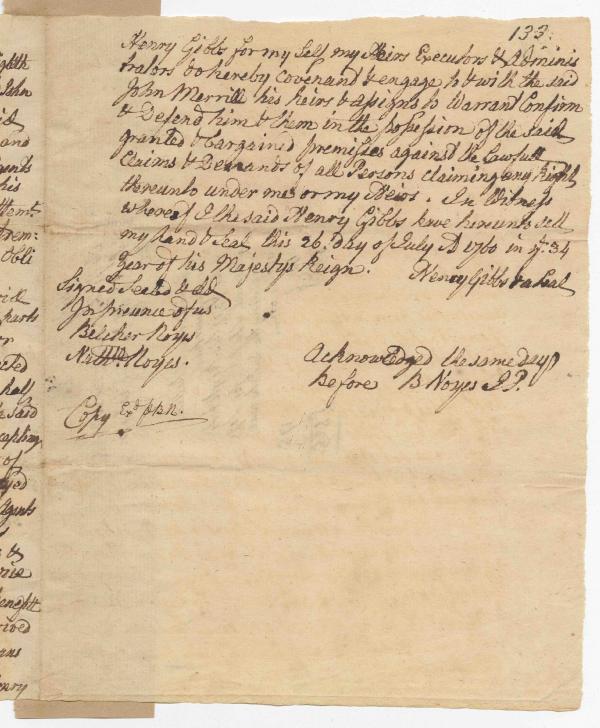 133.
Henry Gibbs for my Self my Heirs Executors & Adminis
trators do hereby covenant & engage to & with the said
John Merrill his heirs & assigns to Warrant Confirm
& Defend him & them in the possession of the said
granted & bargained premisses against the Lawfull
Claims & Demands of all Persons claiming any Right
thereunto under me or my Heirs. In Witness
whereof I the said Henry Gibbs have hereunto sett
my hand & Seal this 26. day of July A 1760 in ye. 34
Year of his Majestys Reign. Henry Gibbs & a Seal
Signed Sealed & dd
In presence of us
Belcher Noyes
Noyes.
Acknowledged the same day
before B Noyes J.P.
Copy Exd
ighth
John
and
his
Obli
parts
or
half
said
of
Agents
&
benefit
rived
Henry